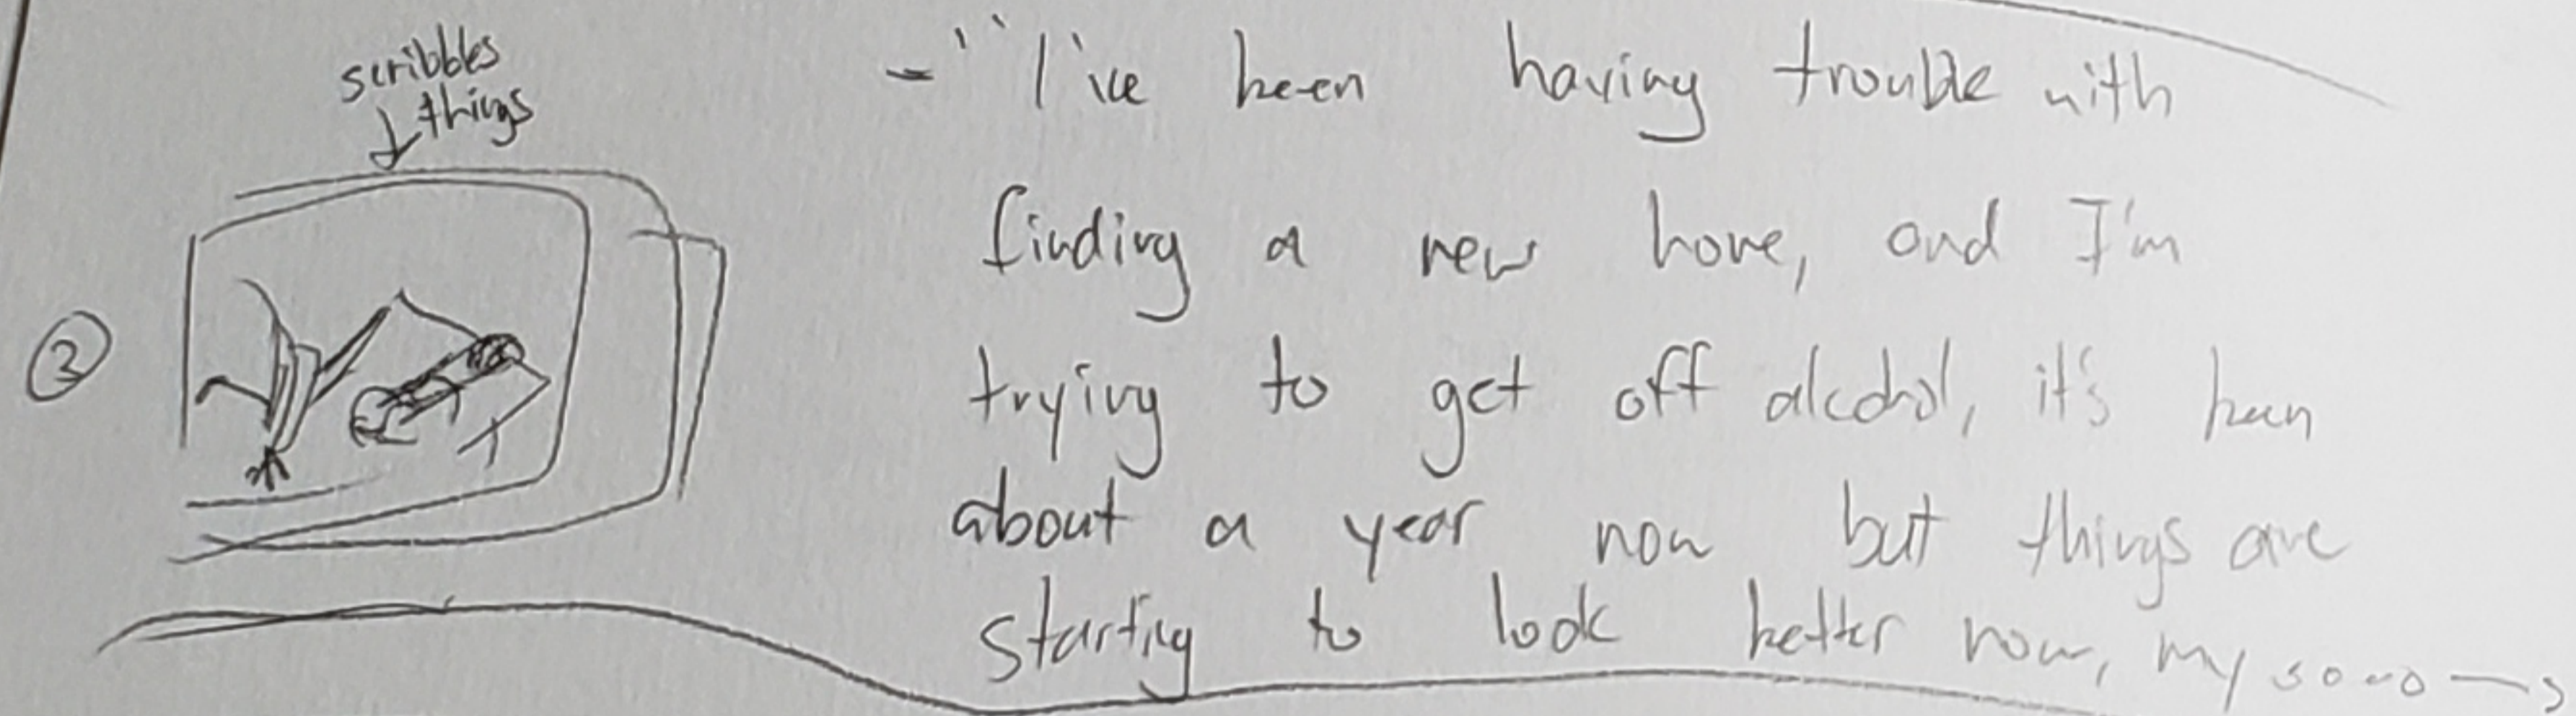 scribbles
things
②
- "I've been having trouble with
finding a new home, and I'm
trying to get off alcohol, it's been
about a year now but things are
starting to look better now, my